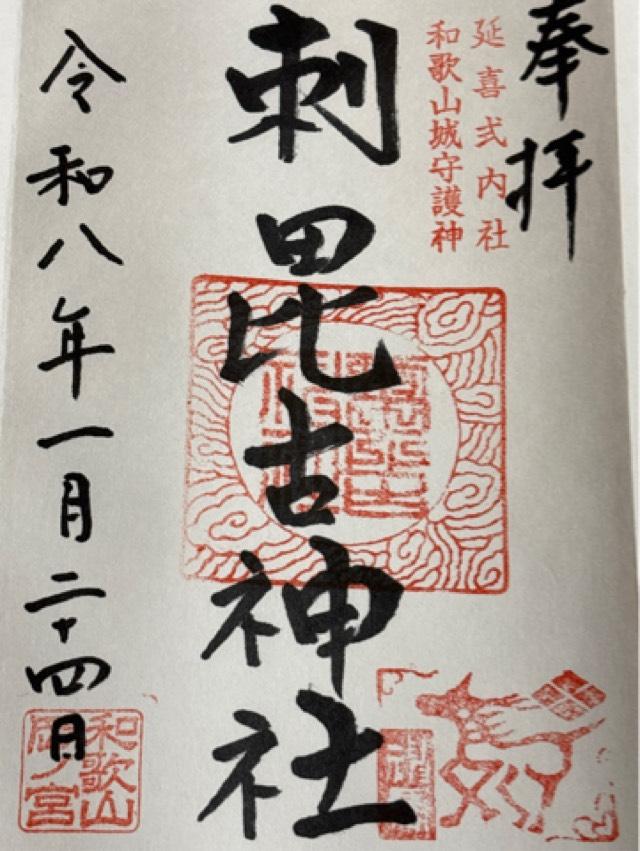 奉拝
延喜式内社
和歌山城守護神
刺田比古神社
令和八年一月二十四日
和歌山
岡ノ宮